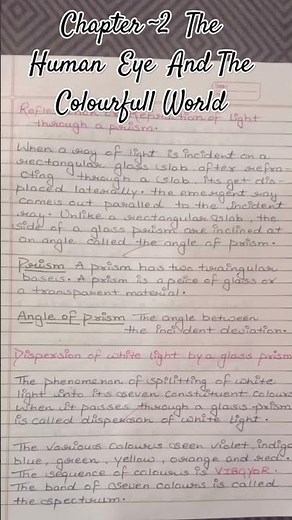 Chapter ~2 The
Human Eye And The
Colourfull World
through a prism.
When a ray of light is incident on a
rectangular glass slab after refra-
cting through a slab its get dis-
placed laterally. the emergent ray
comes out paralled to the incident
ray. Unlike a rectangular slab, the
side of a glass prism are inclined at
an angle called the angle of prism.
Prism A prism has two tiraingular
baseis. A prism is a peice of glass or
a transparent material.
Angle of prism The angle between
the incident deviation.
Dispersion of white light by a glass prism
The phenomenon of spilitting of white
light into its seven constituent colours
When it passes through a glass prism
is called dispersion of white light.
The various colours seen violet, indigo
blue, green, yellow, orange and red.
The sequence of colours is VIBGYOR.
The band of seven colours is called
the spectrum.